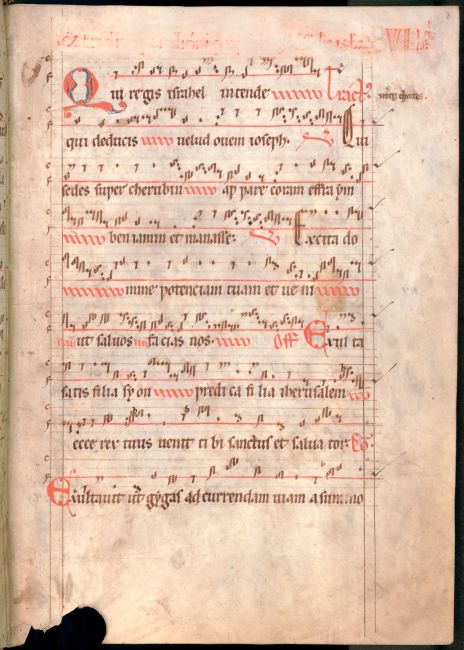 Qui regis israhel intende Tract
qui deducis uelud ouem ioseph. Qui
sedes super cherubin app pare coram effra ym
beniamin et manasse. Excita do
mine potenciam tuam et ue ni
ut saluos facias nos. Off Exul ta
satis filia syon predi ca fi lia iherusalem
ecce rex tuus uenit ti bi sanctus et salua tor. Co
Exultauit ut gygas ad currendam uiam a summo